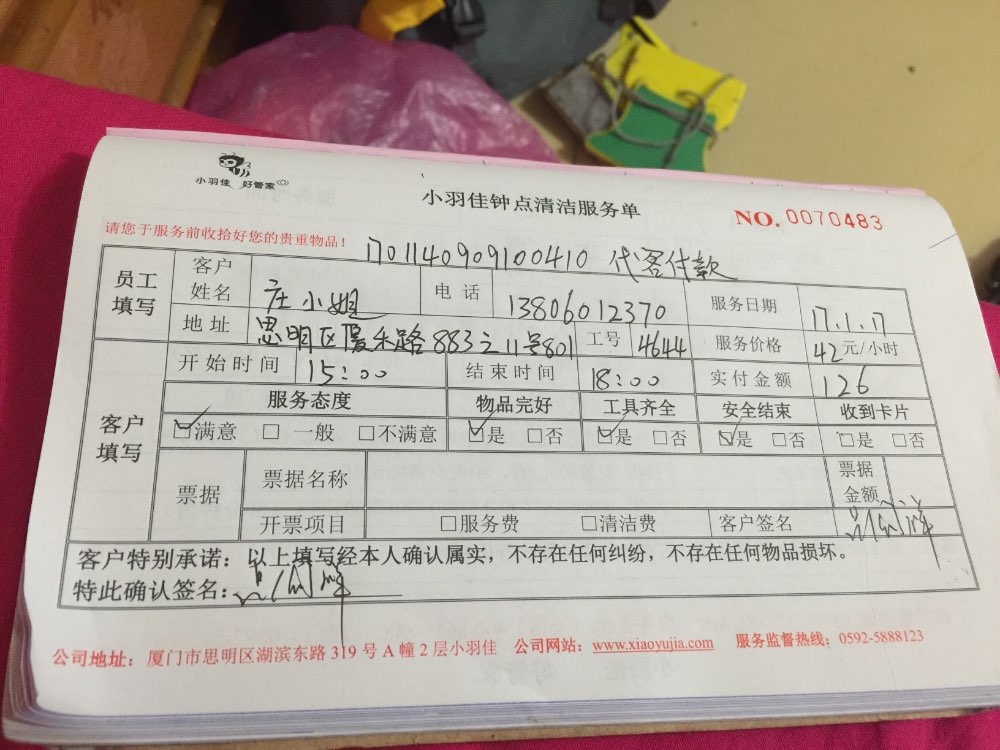 小羽佳 好管家
小羽佳钟点清洁服务单
NO. 0070483
请您于服务前收拾好您的贵重物品！
170114090910041０ 代客付款
员工填写 客户姓名 庄小姐 电话 13806012370 服务日期 17.1.17
地址 思明区厦禾路883之11号801 工号 4644 服务价格 42元/小时
客户填写 开始时间 15:00 结束时间 18:00 实付金额 126
服务态度 物品完好 工具齐全 安全结束 收到卡片
☑满意 □一般 □不满意 ☑是 □否 ☑是 □否 ☑是 □否 □是 □否
票据 票据名称 票据金额
开票项目 □服务费 □清洁费 客户签名
客户特别承诺：以上填写经本人确认属实，不存在任何纠纷，不存在任何物品损坏。
特此确认签名：
公司地址：厦门市思明区湖滨东路319号A幢2层小羽佳 公司网站：www.xiaoyujia.com 服务监督热线：0592-5888123